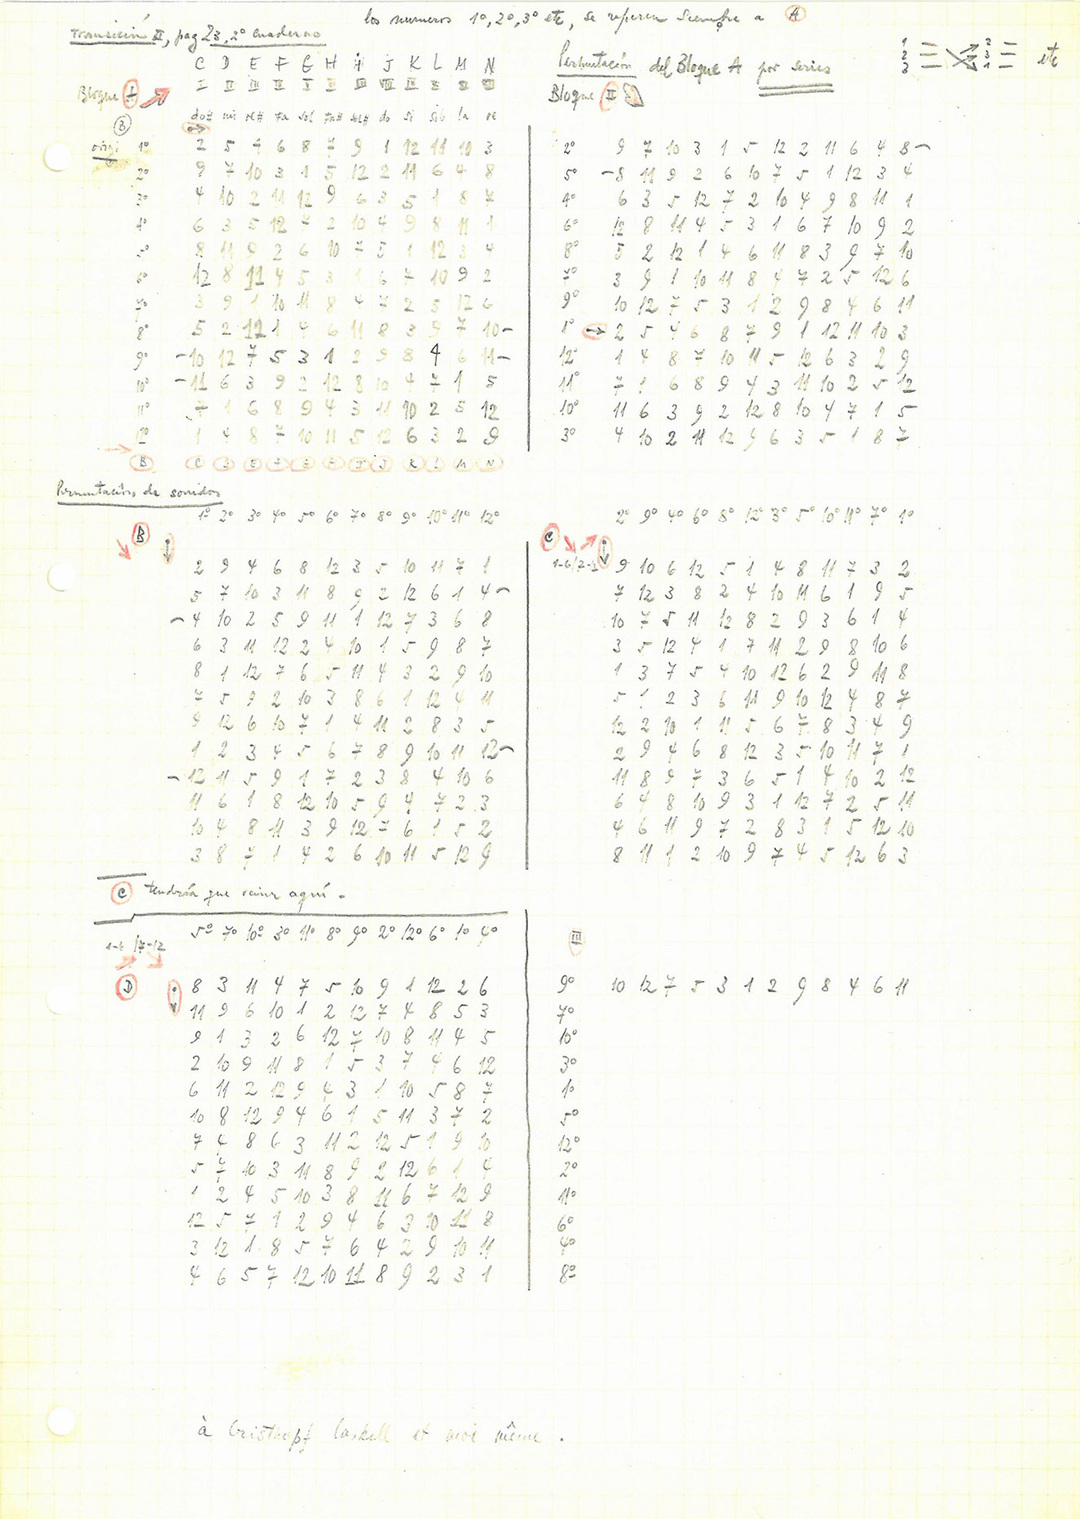 los numeros 1º, 2º, 3º etc, se refieren siempre a A
Transición II, pag 23, 2º cuaderno
C D E F G H I J K L M N
I II III IV V VI VII VIII IX X XI XII
Bloque I
do# mi re# fa sol fa# sol# do si sib la re
origi 1º 2 5 4 6 8 7 9 1 12 11 10 3
2º 9 7 10 3 1 5 12 2 11 6 4 8
3º 4 10 2 11 12 9 6 3 5 1 8 7
4º 6 3 5 12 7 2 10 4 9 8 11 1
5º 8 11 9 2 6 10 7 5 1 12 3 4
6º 12 8 11 4 5 3 1 6 7 10 9 2
7º 3 9 1 10 11 8 4 7 2 5 12 6
8º 5 2 12 1 4 6 11 8 3 9 7 10
9º 10 12 7 5 3 1 2 9 8 4 6 11
10º 11 6 3 9 2 12 8 10 4 7 1 5
11º 7 1 6 8 9 4 3 11 10 2 5 12
12º 1 4 8 7 10 11 5 12 6 3 2 9
B C D E F G H I J K L M N
Permutación del Bloque A por series
1 2
2 3
3 1
etc
Bloque II
2º 9 7 10 3 1 5 12 2 11 6 4 8
5º 8 11 9 2 6 10 7 5 1 12 3 4
4º 6 3 5 12 7 2 10 4 9 8 11 1
6º 12 8 11 4 5 3 1 6 7 10 9 2
8º 5 2 12 1 4 6 11 8 3 9 7 10
7º 3 9 1 10 11 8 4 7 2 5 12 6
9º 10 12 7 5 3 1 2 9 8 4 6 11
1º 2 5 4 6 8 7 9 1 12 11 10 3
12º 1 4 8 7 10 11 5 12 6 3 2 9
11º 7 1 6 8 9 4 3 11 10 2 5 12
10º 11 6 3 9 2 12 8 10 4 7 1 5
3º 4 10 2 11 12 9 6 3 5 1 8 7
Permutación de sonidos
1º 2º 3º 4º 5º 6º 7º 8º 9º 10º 11º 12º
B
2 9 4 6 8 12 3 5 10 11 7 1
5 7 10 3 11 8 9 2 12 6 1 4
4 10 2 5 9 11 1 12 7 3 6 8
6 3 11 12 2 4 10 1 5 9 8 7
8 1 12 7 6 5 11 4 3 2 9 10
7 5 9 2 10 3 8 6 1 12 4 11
9 12 6 10 7 1 4 11 2 8 3 5
1 2 3 4 5 6 7 8 9 10 11 12
12 11 5 9 1 7 2 3 8 4 10 6
11 6 1 8 12 10 5 9 4 7 2 3
10 4 8 11 3 9 12 7 6 1 5 2
3 8 7 1 4 2 6 10 11 5 12 9
2º 9º 4º 6º 8º 12º 3º 5º 10º 11º 7º 1º
C
9 10 6 12 5 1 4 8 11 7 3 2
7 12 3 8 2 4 10 11 6 1 9 5
10 7 5 11 12 8 2 9 3 6 1 4
3 5 12 4 1 7 11 2 9 8 10 6
1 3 7 5 4 10 12 6 2 9 11 8
5 1 2 3 6 11 9 10 12 4 8 7
12 2 10 1 11 5 6 7 8 3 4 9
2 9 4 6 8 12 3 5 10 11 7 1
11 8 9 7 3 6 5 1 4 10 2 12
6 4 8 10 9 3 1 12 7 2 5 11
4 6 11 9 7 2 8 3 1 5 12 10
8 11 1 2 10 9 7 4 5 12 6 3
C tendría que venir aquí.
5º 7º 10º 3º 11º 8º 9º 2º 12º 6º 1º 4º
1-6 / 7-12
D
8 3 11 4 7 5 10 9 1 12 2 6
11 9 6 10 1 2 12 7 4 8 5 3
9 1 3 2 6 12 7 10 8 11 4 5
2 10 9 11 8 1 5 3 7 4 6 12
6 11 2 12 9 4 3 1 10 5 8 7
10 8 12 9 4 6 1 5 11 3 7 2
7 4 8 6 3 11 2 12 5 1 9 10
5 7 10 3 11 8 9 2 12 6 1 4
1 2 4 5 10 3 8 11 6 7 12 9
12 5 7 1 2 9 4 6 3 10 11 8
3 12 1 8 5 7 6 4 2 9 10 11
4 6 5 7 12 10 11 8 9 2 3 1
III
9º 10 12 7 5 3 1 2 9 8 4 6 11
7º
10º
3º
1º
5º
12º
2º
11º
6º
4º
8º
à et moi même.